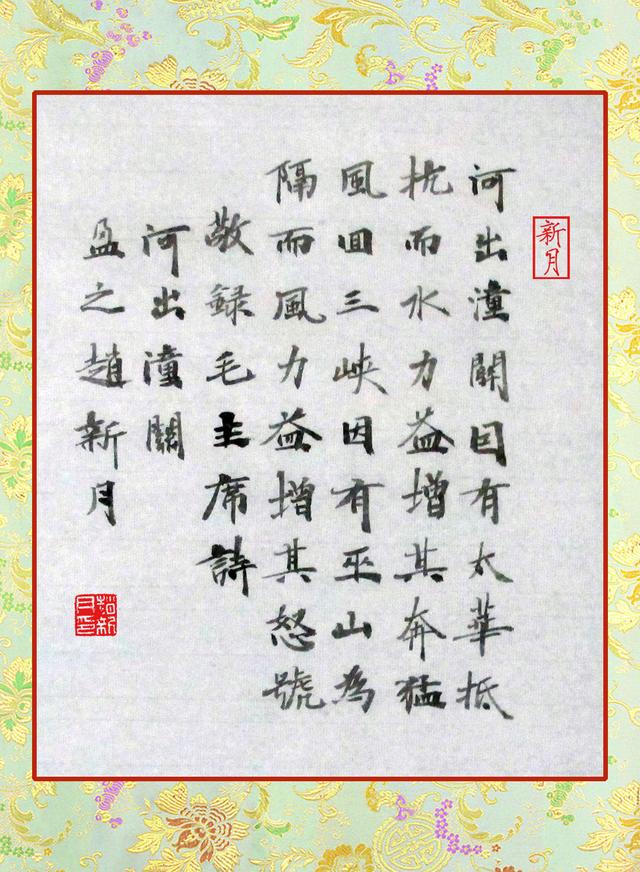 新月
河出潼關因有太華抵
抗而水力益增其奔猛
風回三峽因有巫山為
隔而風力益增其怒號
敬録毛主席詩
河出潼關
盈之趙新月
趙新月印